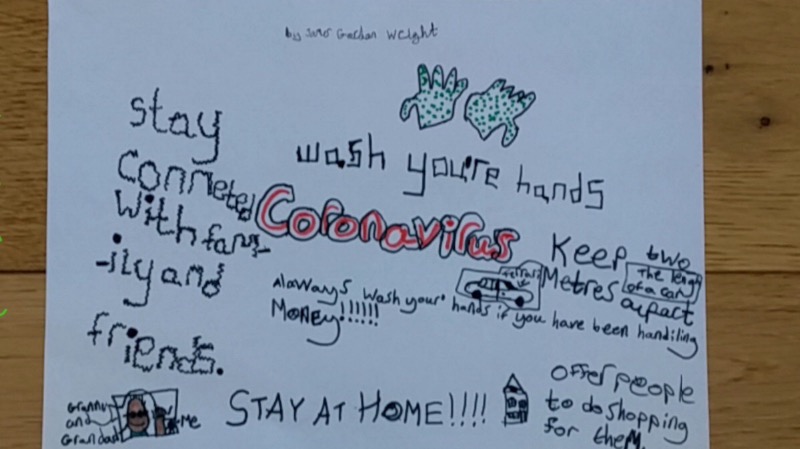 by
wash you're hands
stay
Conneted
with fam-
-ily and
friends.
Coronavirus
Keep two
Metres apart
The lengh
of a car
ferrari
Alaways wash your hands if you have been handiling
MONEY!!!!!!
Granny
and
Grandad
Me
STAY AT HOME!!!!
offer people
to do shopping
for them.